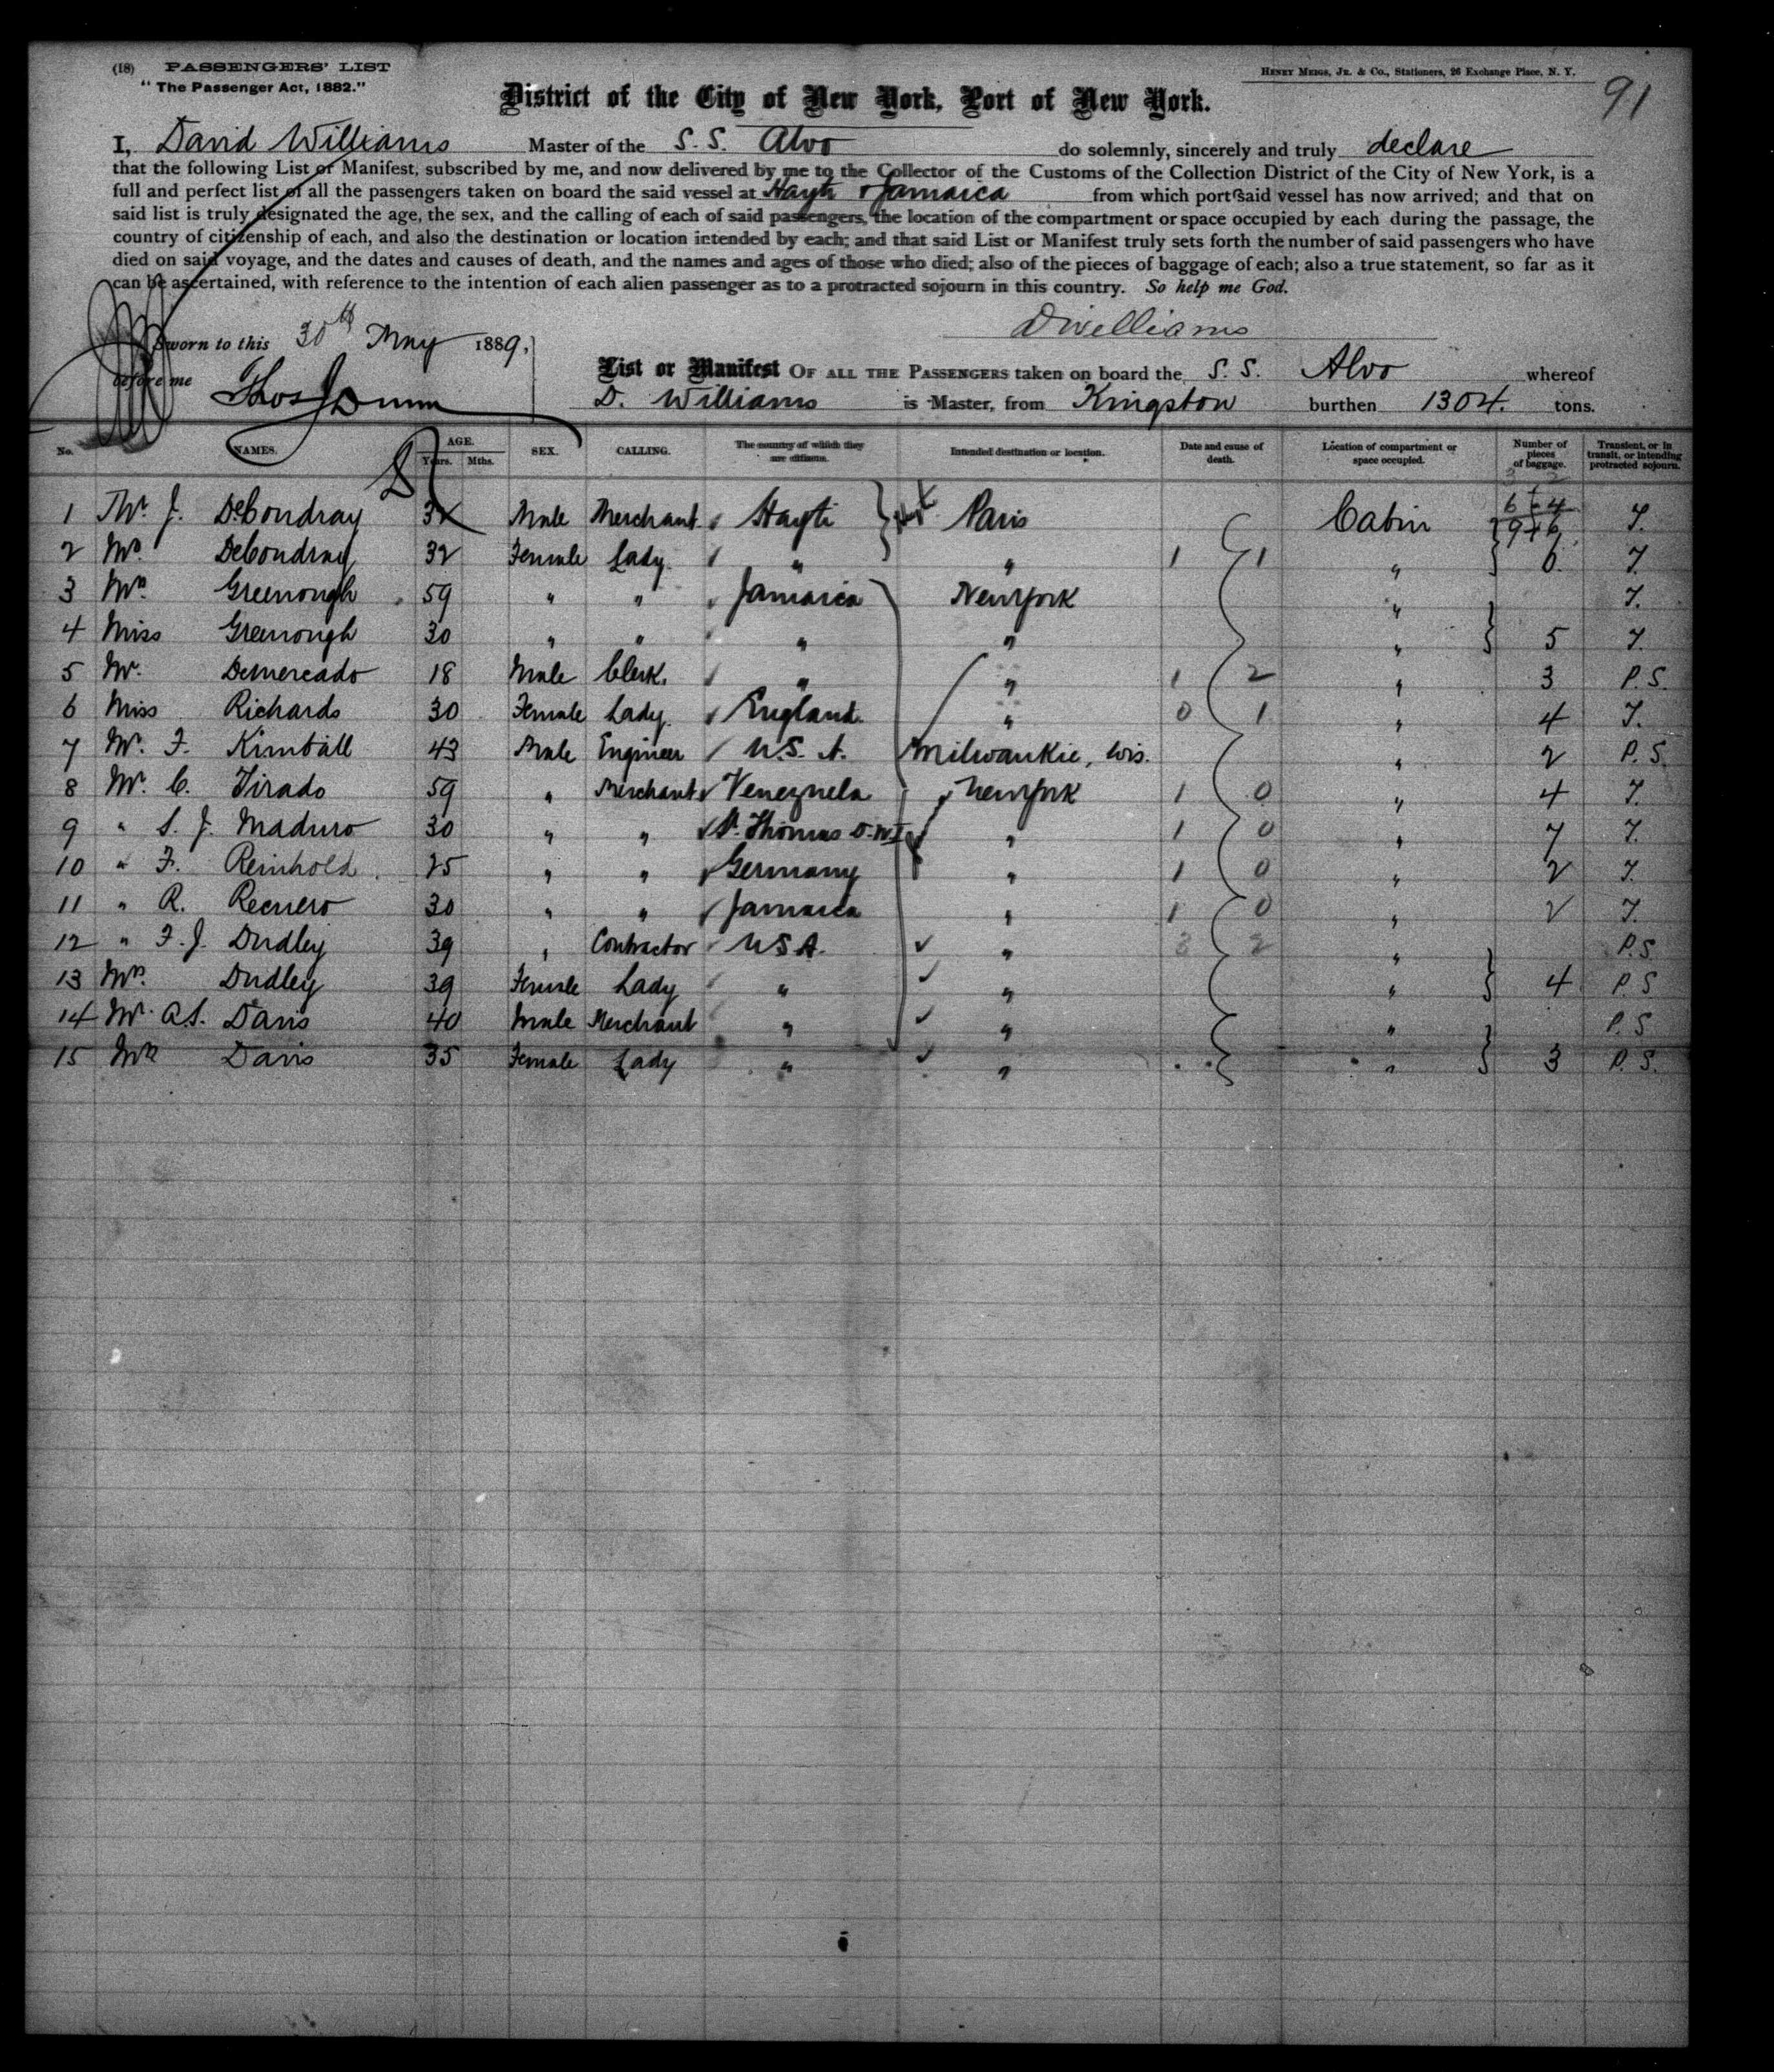 (18) PASSENGERS' LIST
HENRY MEIGS, JR. & CO., Stationers, 26 Exchange Place, N. Y.
91
"The Passenger Act, 1882."
District of the City of New York, Port of New York.
I, David Williams Master of the S. S. Alvo do solemnly, sincerely and truly declare
that the following List or Manifest, subscribed by me, and now delivered by me to the Collector of the Customs of the Collection District of the City of New York, is a
full and perfect list of all the passengers taken on board the said vessel at Hayti & Jamaica from which port said vessel has now arrived; and that on
said list is truly designated the age, the sex, and the calling of each of said passengers, the location of the compartment or space occupied by each during the passage, the
country of citizenship of each, and also the destination or location intended by each; and that said List or Manifest truly sets forth the number of said passengers who have
died on said voyage, and the dates and causes of death, and the names and ages of those who died; also of the pieces of baggage of each; also a true statement, so far as it
can be ascertained, with reference to the intention of each alien passenger as to a protracted sojourn in this country. So help me God.
DWilliams
Sworn to this 30th May 1889,
before me Thos J Dunn
List or Manifest OF ALL THE PASSENGERS taken on board the S. S. Alvo whereof
D. Williams is Master, from Kingston burthen 1304. tons.
No. NAMES. AGE. Years. Mths. SEX. CALLING. The country of which they are citizens. Intended destination or location. Date and cause of death. Location of compartment or space occupied. Number of pieces of baggage. Transient, or in transit, or intending protracted sojourn.
1 Mr. J. Male Merchant Hayti Paris Cabin T.
2 Mrs 32 Female Lady. " " 1 1 " 6. T.
3 Mrs. Greenough 59 " " Jamaica New York " T.
4 Miss Greenough 30 " " " " " 5 T.
5 Mr. Demercado 18 Male Clerk. " " 1 2 " 3 P.S.
6 Miss Richards 30 Female Lady. England. " 0 1 " 4 T.
7 Mr. F. Kimball 43 Male Engineer U.S. A. Milwaukie, Wis. " 2 P.S.
8 Mr. C. Tirado 59 " Merchant Venezuela New York 1 0 " 4 T.
9 " S. J. Maduro 30 " " St. Thomas D.W.I " 1 0 " 7 T.
10 " F. Reinhold. 25 " " Germany " 1 0 " 2 T.
11 " R. 30 " " Jamaica " 1 0 " 2 T.
12 " F. J. Dudley 39 " Contractor U S A. " 3 2 " P.S
13 Mrs. Dudley 39 Female Lady " " " 4 P.S
14 Mr. A.S. Davis 40 Male Merchant " " " P.S
15 Mrs Davis 35 Female Lady " " " 3 P.S.